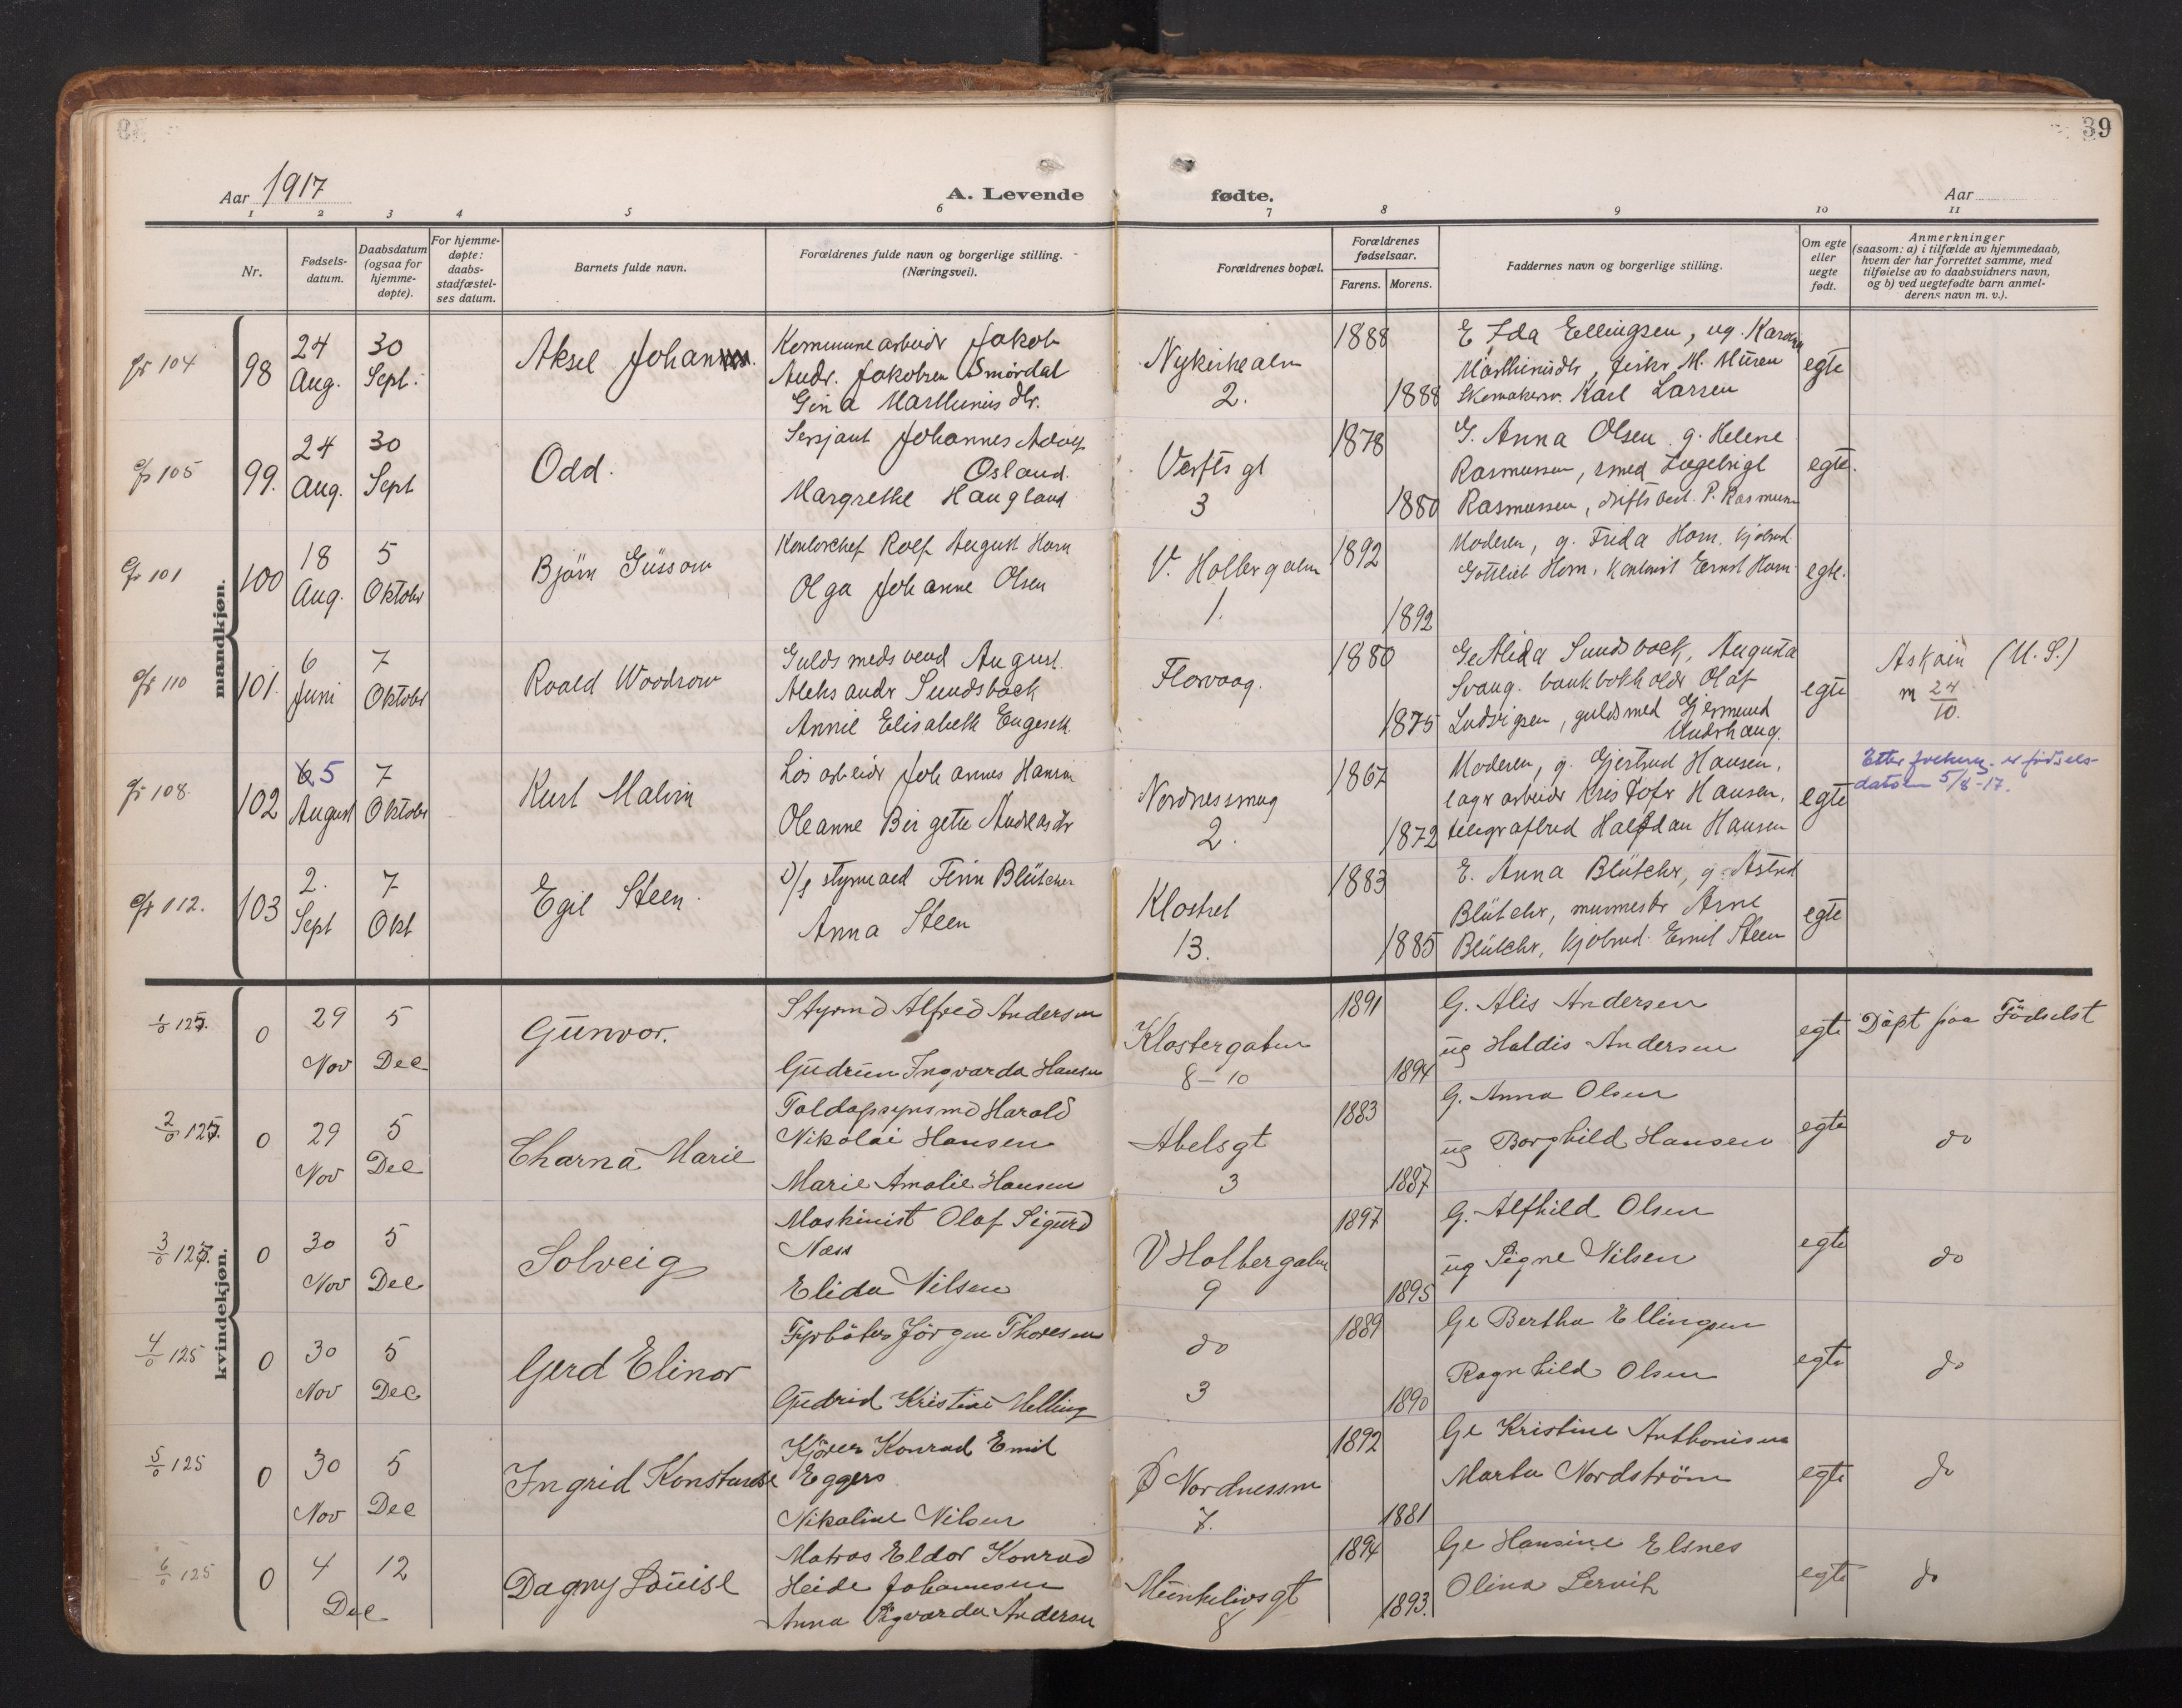 39
Aar 1917
A. Levende
fødte.
Aar
1 2 3 4 5 6 7 8 9 10 11
Nr.
Fødsels-
datum.
Daabsdatum
(ogsaa for
hjemme-
døpte).
For hjemme-
døpte:
daabs-
stadfæstel-
ses datum.
Barnets fulde navn.
Forældrenes fulde navn og borgerlige stilling.
(Næringsvei).
Forældrenes bopæl.
Forældrenes
fødselsaar.
Farens. Morens.
Faddernes navn og borgerlige stilling.
Om egte
eller
uegte
født.
Anmerkninger
(saasom: a) i tilfælde av hjemmedaab,
hvem der har forrettet samme, med
tilføielse av to daabsvidners navn,
og b) ved uegtefødte barn anmel-
derens navn m. v.).
mandkjøn.
104
98
24
Aug.
30
Sept.
Aksel Johan
Kommunearbeidr Jakob
Andr. Jakobsen Smördal
Gina Marthinusdtr.
Nykirkealm
2.
1888
1888
E Ida Ellingsen, ug. Karolin
Marthinusdtr, fiskr M. Muren
Skomakersv. Karl Larsen
egte
105
99.
24
Aug.
30
Sept
Odd.
Sersjant Johannes Adolf
Osland.
Margrethe Haugland
Verfts gt
3
1878
1880
G. Anna Olsen g. Helene
Rasmussen, smed Ingebrigt
Rasmussen, driftsbest. P. Rasmussen
egte.
101
100
18
Aug.
5
Oktobr
Björn Güssow
Kontorchef Rolf August Horn
Olga Johanne Olsen
V. Holbergalm
1.
1892
1892
Moderen, g. Frida Horn, kjöbmd.
Gottlieb Horn, kontorist Ernst Horn.
egte.
110
101.
6
Juni
7
Oktobr
Roald Woodrow
Guldsmedsvend August
Aleksandr Sundsback
Annie Elisabeth Engeseth.
Florvaag.
1880
1875
Ge Alida Sundsback, Augusta
Svang. bankbokholdr Olaf
Ludvigsen, guldsmed Gjermund
Undrhaug.
egte
Asköin (U. S.)
m 24/10.
108.
102
5
August
7
Oktobr
Kurt Malvin
Lösarbeidr Johannes Hansen
Oleanne Birgette Andreasdtr
Nordnessmug
2.
1867
1872
Moderen, g. Gjertrud Hansen,
lagrarbeidr Kristofr Hansen,
telegrafbud Halfdan Hansen
egte
er fødsels-
datoen 5/8-17.
112.
103
2.
Sept
7
Okt
Egil Steen
D/s styrmand Finn Blütcher
Anna Steen
Klostret
13.
1883
1885
E. Anna Blütchr, g. Astrid
Blütchr, murmestr Arne
Blütchr, kjöbmd. Emil Steen
egte
kvindekjøn.
1/0 125.
0
29
Nov
5
Dec
Gunvor.
Styrmd Alfred Andersen
Gudrun Ingvarda Hansen
Klostergaten
8–10
1891
1894
G. Alis Andersen
ug Haldis Andersen
egte
Döpt paa Födselst
2/0 125.
0
29
Nov
5
Dec
Charna Marie
Toldopsynsmd Harald
Nikolai Hansen
Marie Amalie Hansen
Abelsgt
3
1883
1887
G. Anna Olsen
ug Borghild Hansen
egte
do
3/0 125.
0
30
Nov
5
Dec
Solveig
Maskinist Olaf Sigurd
Næss
Elida Nilsen
V Holbergalm
9
1897
1895
G. Alfhild Olsen
ug Signe Nilsen
egte
do
4/0 125
0
30
Nov
5
Dec
Gerd Elinor
Fyrböter Jörgen Thoresen
Gudrid Kristine Melling
do
3
1889
1890
Ge Bertha Ellingsen
Ragnhild Olsen
egte
do
5/0 125
0
30
Nov
5
Dec
Ingrid Konstanse
Kjörer Konrad Emil
Eggers
Nikoline Nilsen
Ø Nordnessm
7.
1892
1881
Ge Kristine Anthonisen
Marta Nordström
egte
do
6/0 125
0
4
12
Dec
Dagny Louise
Matros Eldor Konrad
Heide Johannesen
Anna Sigvarda Andersen
Munkelivsgt
8
1894
1893.
Ge Hansine Elsnes
Olina Lervik
egte
do